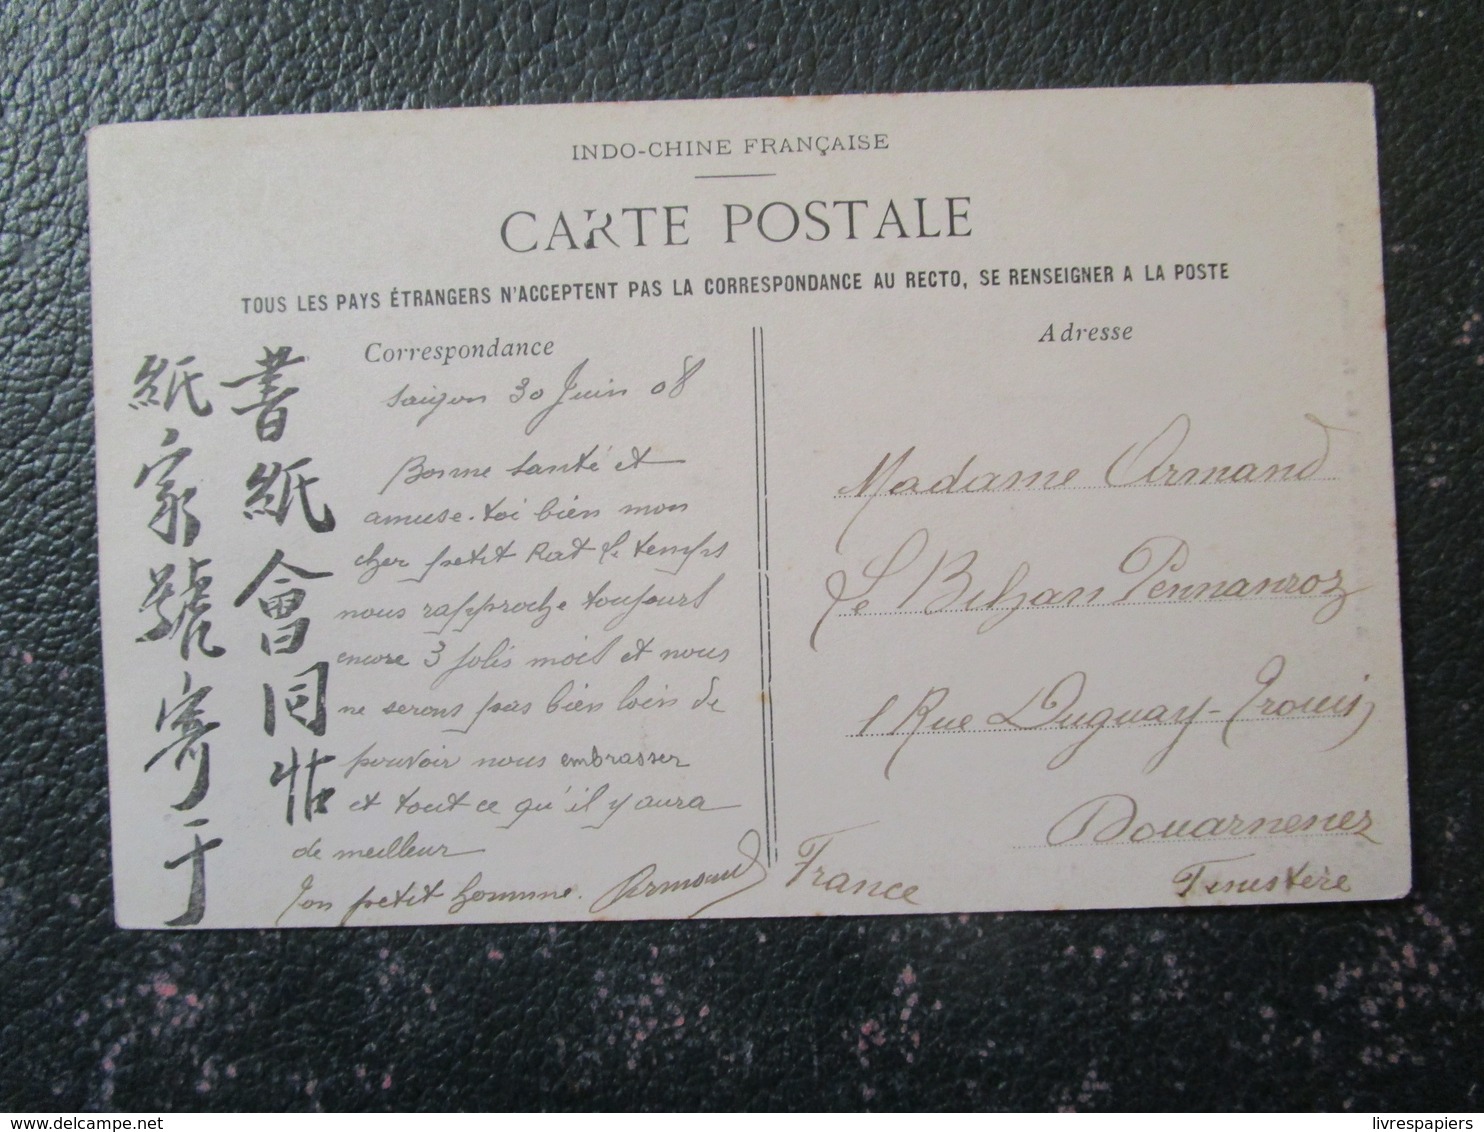 INDO-CHINE FRANÇAISE
CARTE POSTALE
TOUS LES PAYS ÉTRANGERS N'ACCEPTENT PAS LA CORRESPONDANCE AU RECTO, SE RENSEIGNER A LA POSTE
Correspondance
Saigon 30 Juin 08
Bonne santé et
amuse-toi bien mon
cher petit Rat le temps
nous rapproche toujours
encore 3 jolis mois et nous
ne serons pas bien loin de
pouvoir nous embrasser
et tout ce qu'il y aura
de meilleur
Ton petit homme. Armand
書紙會同帖
紙家號寄于
Adresse
Madame Armand
Le Bihan Pennanroz
1 Rue Duguay-Trouin
Douarnenez
Finistère
France
livrespapiers